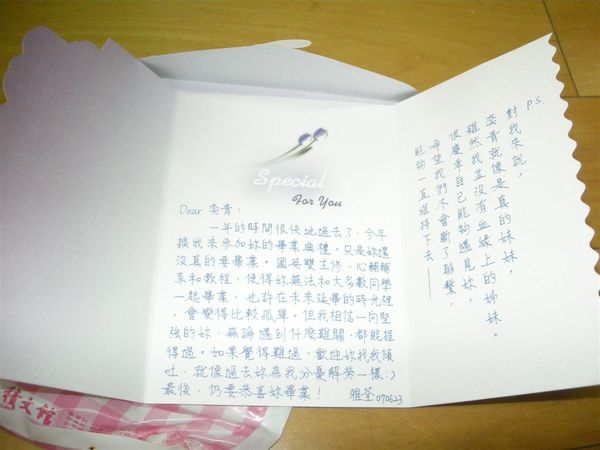 Special
For You
Dear 奕青:
一年的時間很快地過去了,今年
換我來參加妳的畢業典禮,只是妳還
沒真的要畢業。國英雙主修、心輔輔
系和教程,使得妳無法和大多數同學
一起畢業,也許在未來延畢的時光裡
,會覺得比較孤單。但我相信一向堅
強的妳,無論遇到什麼難關,都能捱
得過。如果覺得難過,歡迎妳找我傾
吐,就像過去妳為我分憂解勞一樣:)
最後,仍要恭喜妳畢業!
雅荃 070623
P.S.
對我來說,
奕青就像是真的妹妹,
雖然我並沒有血緣上的姊妹。
很慶幸自己能夠遇見妳,
希望我們不會斷了聯繫,
能夠一直維持下去——
文館